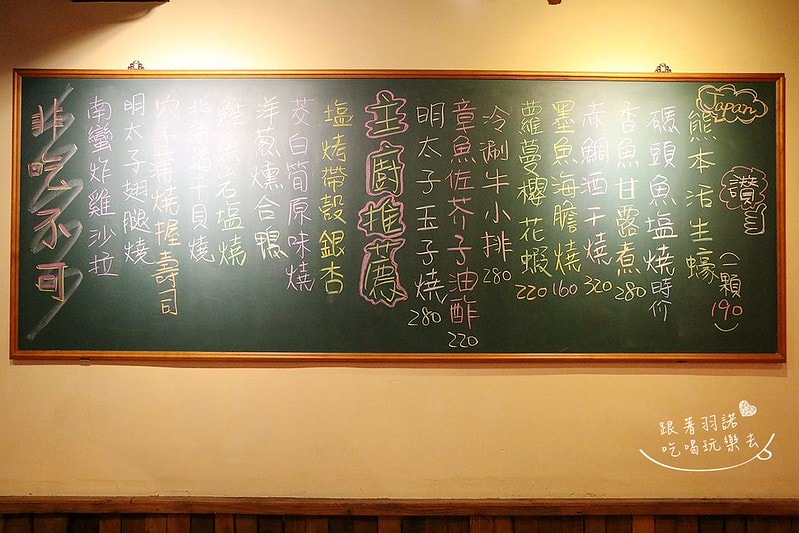 Japan
讚
熊本活生蠔(一顆190)
磯頭魚塩燒時价
香魚甘露煮280
赤鯛酒干燒320
墨魚海膽燒160
蘿蔓櫻花蝦220
冷涮牛小排280
章魚佐芥子油醋220
明太子玉子燒280
主廚推薦
塩烤帶殼銀杏
茭白筍原味燒
洋蔥燻合鴨
岩塩燒
干貝燒
穴子蒲燒握壽司
明太子翅腿燒
南蠻炸雞沙拉
非吃不可
跟著羽諾
吃喝玩樂去